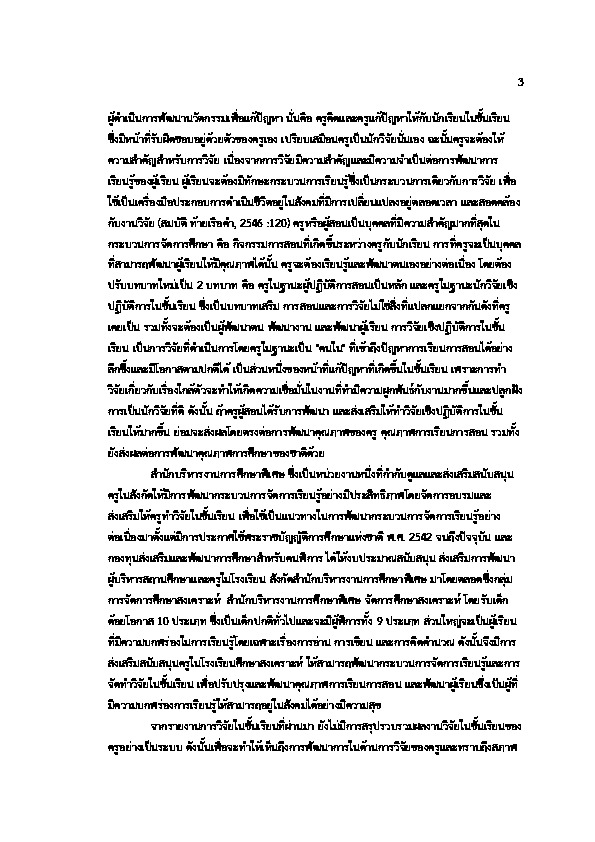 3
ผู้ดำเนินการพัฒนานวัตกรรมเพื่อแก้ปัญหา นั่นคือ ครูคิดและครูแก้ปัญหาให้กับนักเรียนในชั้นเรียน
ซึ่งมีหน้าที่รับผิดชอบอยู่ด้วยตัวของครูเอง เปรียบเสมือนครูเป็นนักวิจัยนั่นเอง ฉะนั้นครูจะต้องให้
ความสำคัญสำหรับการวิจัย เนื่องจากการวิจัยมีความสำคัญและมีความจำเป็นต่อการพัฒนาการ
เรียนรู้ของผู้เรียน ผู้เรียนจะต้องมีทักษะกระบวนการเรียนรู้ซึ่งเป็นกระบวนการเดียวกับการวิจัย เพื่อ
ใช้เป็นเครื่องมือประกอบการดำเนินชีวิตอยู่ในสังคมที่มีการเปลี่ยนแปลงอยู่ตลอดเวลา และสอดคล้อง
กับงานวิจัย (สมบัติ ท้ายเรือคำ, 2546 :120) ครูหรือผู้สอนเป็นบุคคลที่มีความสำคัญมากที่สุดใน
กระบวนการจัดการศึกษา คือ กิจกรรมการสอนที่เกิดขึ้นระหว่างครูกับนักเรียน การที่ครูจะเป็นบุคคล
ที่สามารถพัฒนาผู้เรียนให้มีคุณภาพได้นั้น ครูจะต้องเรียนรู้และพัฒนาตนเองอย่างต่อเนื่อง โดยต้อง
ปรับบทบาทใหม่เป็น 2 บทบาท คือ ครูในฐานะผู้ปฏิบัติการสอนเป็นหลัก และครูในฐานะนักวิจัยเชิง
ปฏิบัติการในชั้นเรียน ซึ่งเป็นบทบาทเสริม การสอนและการวิจัยไม่ใช่สิ่งที่แปลกแยกจากกันดังที่ครู
เคยเป็น รวมทั้งจะต้องเป็นผู้พัฒนาตน พัฒนางาน และพัฒนาผู้เรียน การวิจัยเชิงปฏิบัติการในชั้น
เรียน เป็นการวิจัยที่ดำเนินการโดยครูในฐานะเป็น "คนใน" ที่เข้าถึงปัญหาการเรียนการสอนได้อย่าง
ลึกซึ้งและมีโอกาสตามปกติได้ เป็นส่วนหนึ่งของหน้าที่แก้ปัญหาที่เกิดขึ้นในชั้นเรียน เพราะการทำ
วิจัยเกี่ยวกับเรื่องใกล้ตัวจะทำให้เกิดความเชื่อมั่นในงานที่ทำมีความผูกพันธ์กับงานมากขึ้นและปลูกฝัง
การเป็นนักวิจัยที่ดี ดังนั้น ถ้าครูผู้สอนได้รับการพัฒนา และส่งเสริมให้ทำวิจัยเชิงปฏิบัติการในชั้น
เรียนให้มากขึ้น ย่อมจะส่งผลโดยตรงต่อการพัฒนาคุณภาพของครู คุณภาพการเรียนการสอน รวมทั้ง
ยังส่งผลต่อการพัฒนาคุณภาพการศึกษาของชาติด้วย
สำนักบริหารงานการศึกษาพิเศษ ซึ่งเป็นหน่วยงานหนึ่งที่กำกับดูแลและส่งเสริมสนับสนุน
ครูในสังกัดให้มีการพัฒนากระบวนการจัดการเรียนรู้อย่างมีประสิทธิภาพโดยจัดการอบรมและ
ส่งเสริมให้ครูทำวิจัยในชั้นเรียน เพื่อใช้เป็นแนวทางในการพัฒนากระบวนการจัดการเรียนรู้อย่าง
ต่อเนื่องมาตั้งแต่มีการประกาศใช้พระราชบัญญัติการศึกษาแห่งชาติ พ.ศ. 2542 จนถึงปัจจุบัน และ
กองทุนส่งเสริมและพัฒนาการศึกษาสำหรับคนพิการ ได้ให้งบประมาณสนับสนุน ส่งเสริมการพัฒนา
ผู้บริหารสถานศึกษาและครูในโรงเรียน สังกัดสำนักบริหารงานการศึกษาพิเศษ มาโดยตลอดซึ่งกลุ่ม
การจัดการศึกษาสงเคราะห์ สำนักบริหารงานการศึกษาพิเศษ จัดการศึกษาสงเคราะห์ โดยรับเด็ก
ด้อยโอกาส 10 ประเภท ซึ่งเป็นเด็กปกติทั่วไปและจะมีผู้พิการทั้ง 9 ประเภท ส่วนใหญ่จะเป็นผู้เรียน
ที่มีความบกพร่องในการเรียนรู้โดยเฉพาะเรื่องการอ่าน การเขียน และการคิดคำนวณ ดังนั้นจึงมีการ
ส่งเสริมสนับสนุนครูในโรงเรียนศึกษาสงเคราะห์ ให้สามารถพัฒนากระบวนการจัดการเรียนรู้และการ
จัดทำวิจัยในชั้นเรียน เพื่อปรับปรุงและพัฒนาคุณภาพการเรียนการสอน และพัฒนาผู้เรียนซึ่งเป็นผู้ที่
มีความบกพร่องการเรียนรู้ให้สามารถอยู่ในสังคมได้อย่างมีความสุข
จากรายงานการวิจัยในชั้นเรียนที่ผ่านมา ยังไม่มีการสรุปรวบรวมผลงานวิจัยในชั้นเรียนของ
ครูอย่างเป็นระบบ ดังนั้นเพื่อจะทำให้เห็นถึงการพัฒนาการในด้านการวิจัยของครูและทราบถึงสภาพ